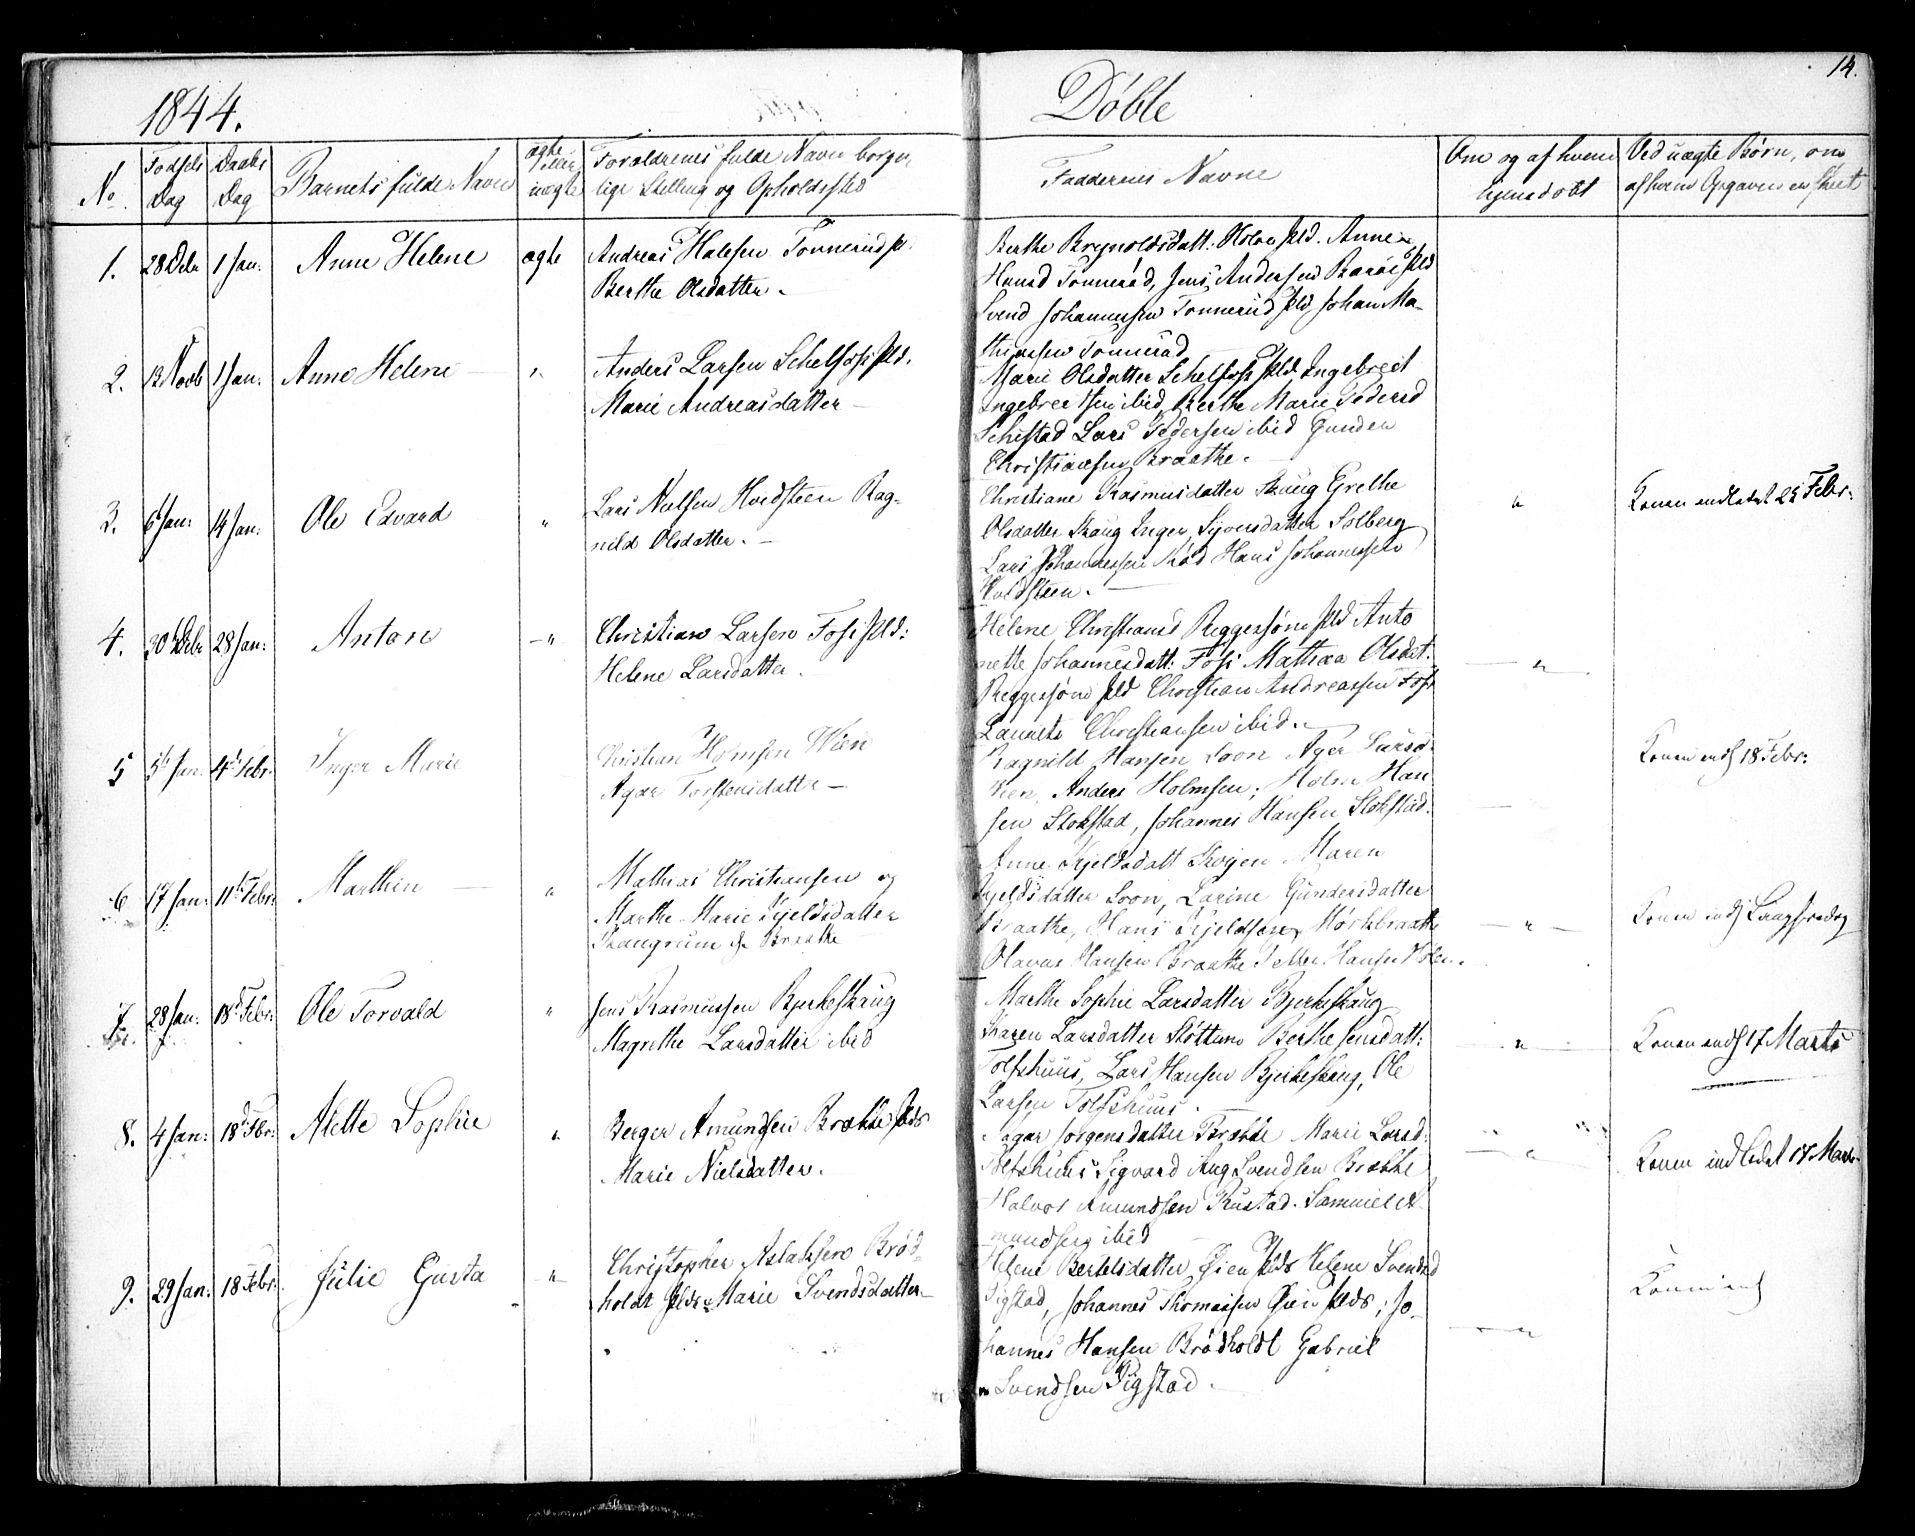 14.
1844.
Døbte
No
Fødsels Dag
Daabs Dag
Barnets fulde Navn
ægte eller uægte
Forældrenes fulde Navn borger-
lige Stilling og Opholdssted
Faddernes Navne
Om og af hvem
hjemedøbt
Ved uægte Børn, om
af hvem Opgaven er skeet
1. 28 Debr 1 Jan: Anne Helene ægte
Andreas Halesen Tonnerud
Berthe Olsdatter. -
Berthe Brynoldsdatt: Holen pld. Anne
Hansd Tonnerød, Jens Andersen pld
Svend Johannessen Tonnerud pld Johan Ma-
thiesen Tonnerød
2. 13 Novb 1 Jan: Anne Helene - "
Anders Larsen Schelfoss pld.
Marie Andreasdatter -
Marie Olsdatter Schelfoss pld Ingebret
Ingebretsen ibid, Berthe Marie Pedersd
Schistad Lars Pedersen ibid Gunder
Christiansen Braathe.
3. 6 Jan: 14 Jan: Ole Edvard "
Lars Nielsen Hvidsteen Rag-
nild Olsdatter. -
Christiane Rasmusdatter Skaug Grethe
Olsdatter Skaug Inger Syversdatter Solberg
Lars Johannessen Rød Hans Johannessen
Hvidsteen. -
"
Konen indledet 25 Febr:
4. 30 Debr 28 Jan: Anton - "
Christian Larsen Foss pld:
Helene Larsdatter.
Helene Christians pld Anto
nette Johannesdatt: Foss Mathea Olsdat:
pld Christian Andreassen Foss
Laurits Christiansen ibid. -
"
5 5 Jan: 4de Febr: Inger Marie
Christian Holmsen Wien
Agar Torstensdatter -
Ragnild Hansen Soon Agar Larsd:
Wien, Anders Holmsen; Holm Han
sen Stokstad, Johannes Hansen Stokstad.
Konen indl 18 Febr:
6 17 Jan: 11te Febr: Marthin - "
Mathias Christiansen og
Marthe Marie Kjeldsdatter
Braathe
Anne Kjeldsdatt Skogen Maren
Kjeldsdatter Soon, Larine Gundersdatter
Braathe, Hans Kjeldsen, Mørkbraathe
Olavus Hansen Braathe Petter Hansen Holm.
- " -
Konen indl Langfredag
7. 28 Jan: 18de Febr: Ole Torvald "
Jens Rasmussen Bjerkeskaug
Magrethe Larsdatter ibid
Marthe Sophie Larsdatter Bjerkeskaug
Karen Larsdatter Støttum Berthe Jensdatt:
Tofshuus, Lars Hansen Bjerkeskaug, Ole
Larsen Tofshuus.
"
Konen indl 17 Marts
8. 4 Jan: 18de Febr: Alette Sophie "
Berger Amundsen Brække plds
Marie Nielsdatter.
Agar Jørgensdatter Brække Marie Larsd:
Tofshuus Sigvard Aug Svendsen Brække
Halvor Amundsen Rustad. Samuel A-
mundsen ibid
"
Konen indledet 17 Marts
9. 29 Jan: 18 Febr: Julie Gusta "
Christopher Aslaksen Brød-
holdt plds Marie Svendsdatter -
Helene Bertelsdatter Øien plds Helene Svendsd
Sigstad, Johannes Thomassen Øien plds; Jo-
hannes Hansen Brødholdt Gabriel
Svendsen Sigstad. -
"
Konen indl